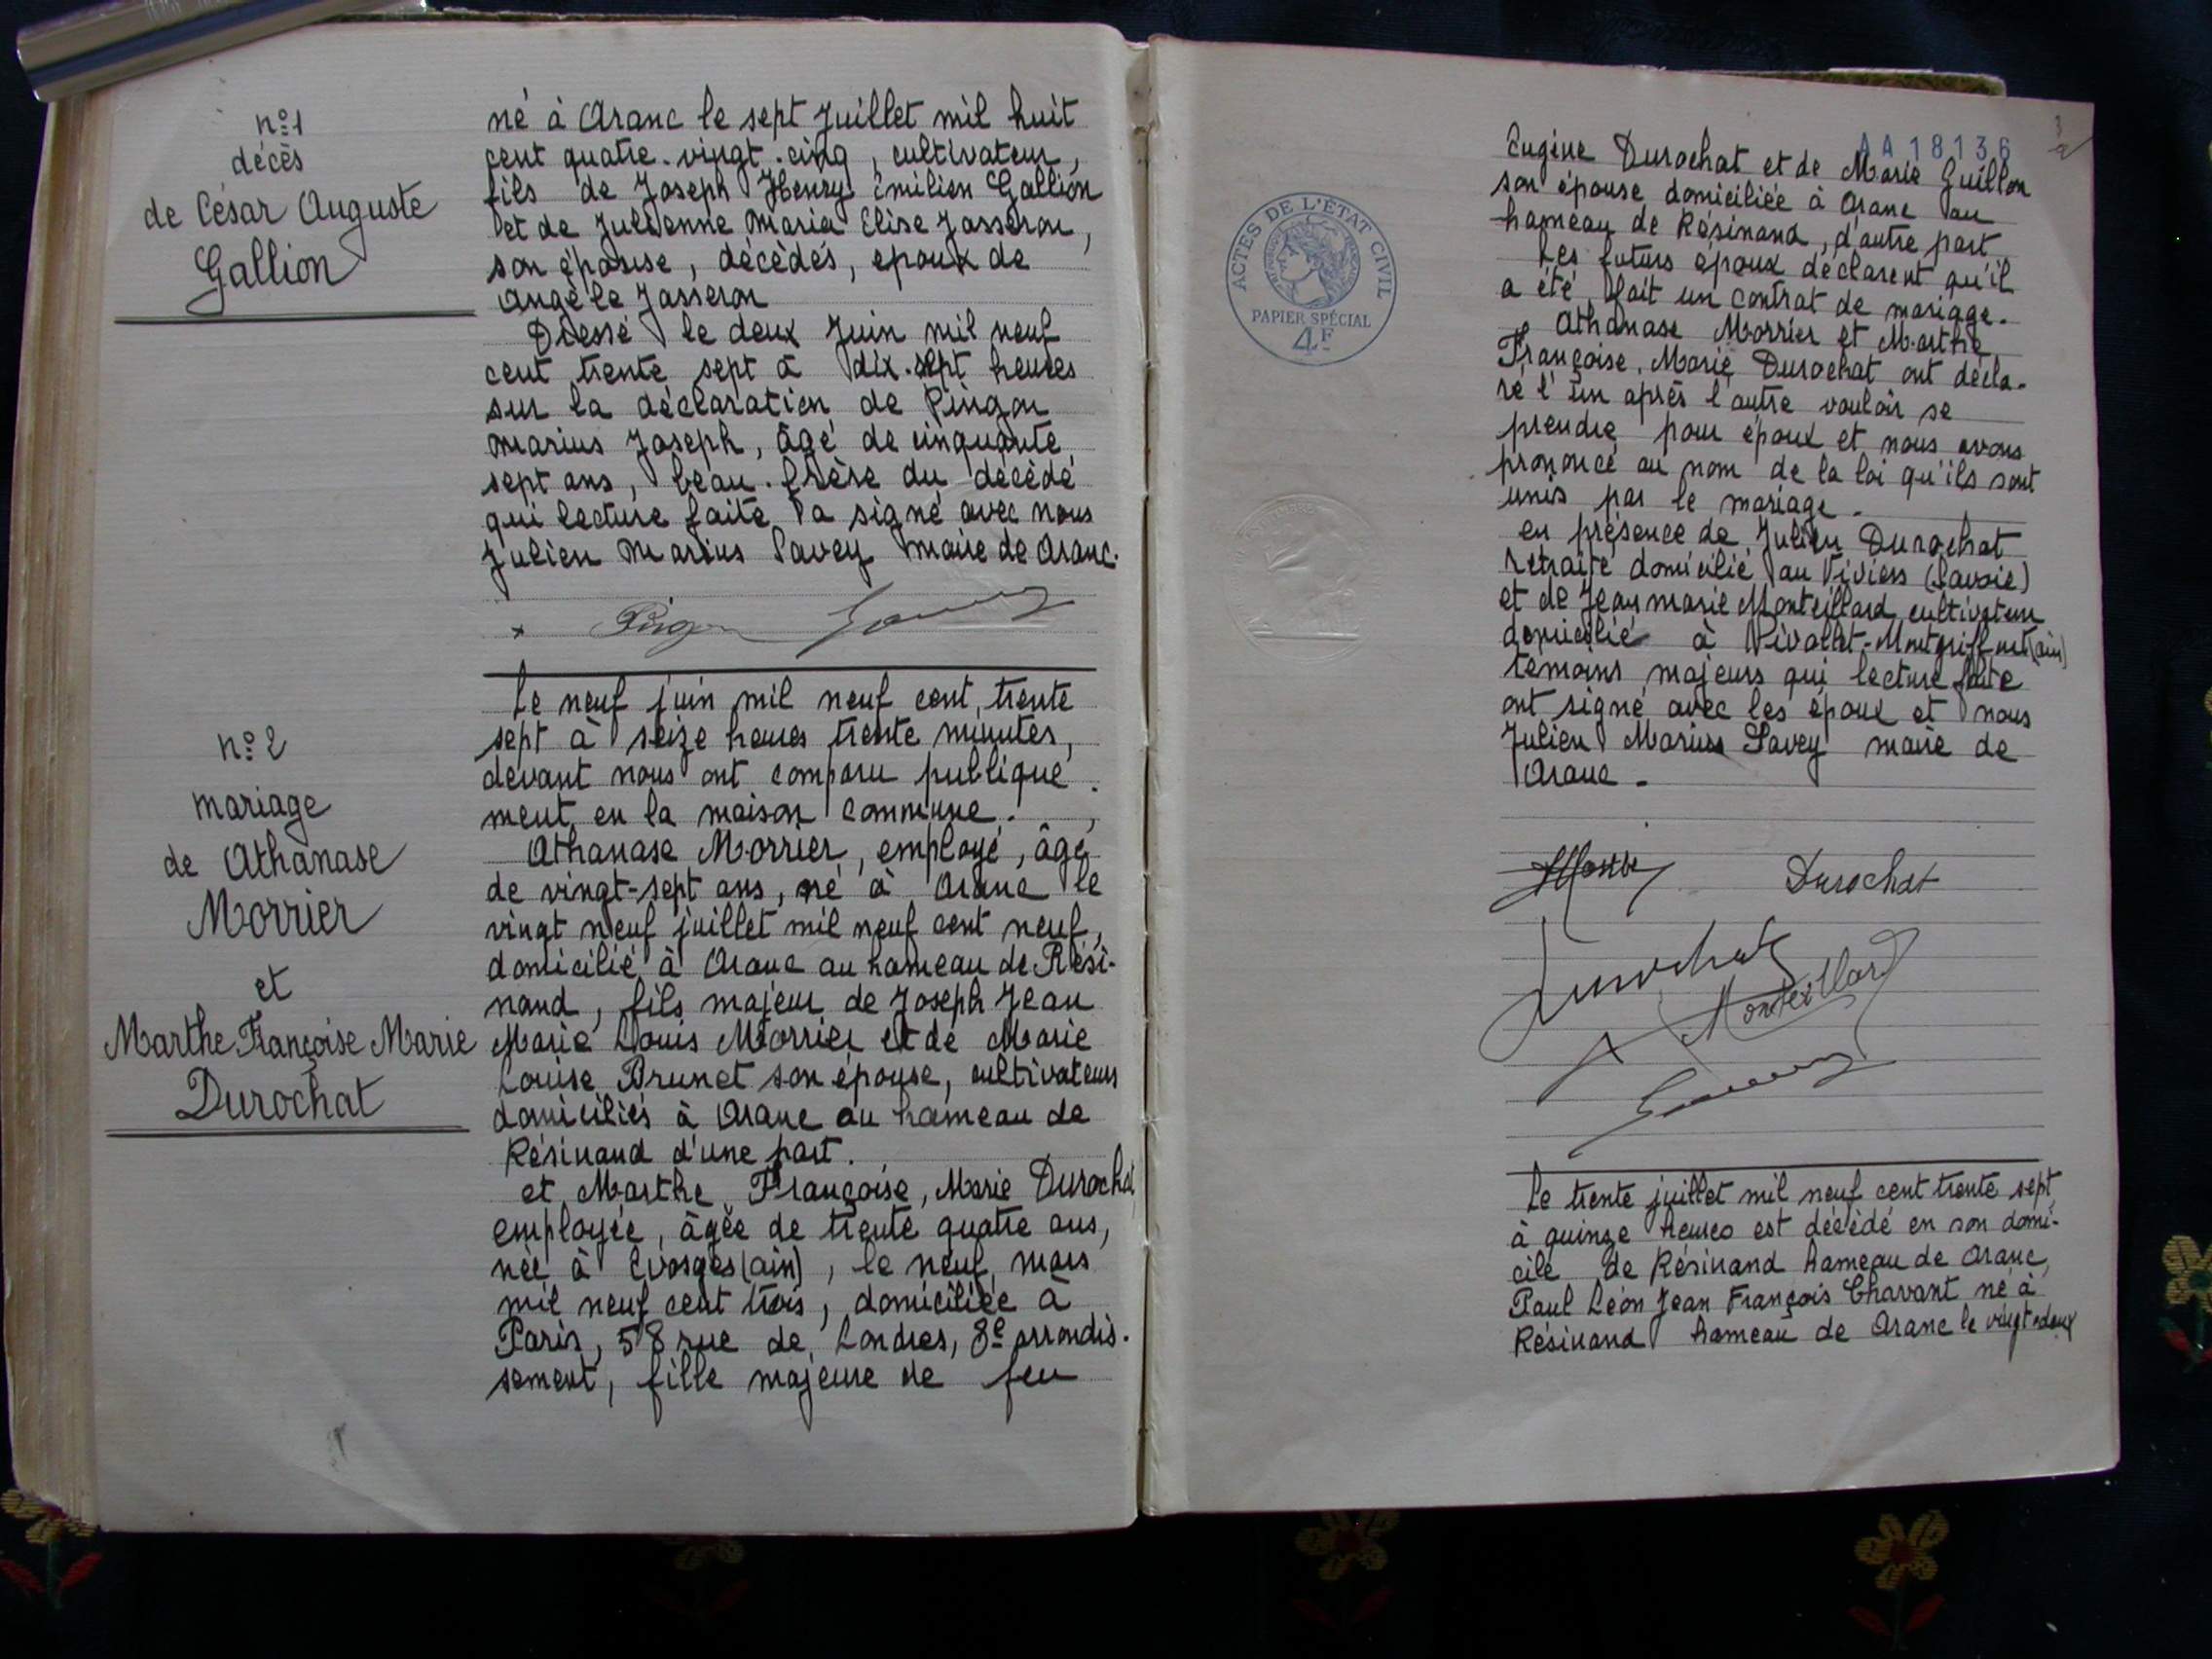 n:º1
décès
de César Auguste
Gallion
né à Aranc le sept Juillet mil huit
cent quatre. vingt. cinq, cultivateur,
fils de Joseph Henry Emilien Gallion
et de Julienne Maria Elise Jasseron,
son épouse, décédés, epoux de
Angèle Jasseron
Dressé le deux Juin mil neuf
cent trente sept à dix. sept heures
sur la déclaration de Pingon
Marius Joseph, âgé de cinquante
sept ans, beau. frère du décédé
qui lecture faite, a signé avec nous
Julien Marius Savey maire de Aranc.
n:º2
mariage
de Athanase
Morrier
et
Marthe Françoise Marie
Durochat
Le neuf juin mil neuf cent, trente
sept à seize heures trente minutes,
devant nous ont comparu publique.
ment en la maison commune.
Athanase Morrier, employé, âgé
de vingt-sept ans, né à Aranc le
vingt neuf juillet mil neuf cent neuf,
domicilié à Aranc au hameau de Rési-
nand, fils majeur de Joseph Jean
Marie Louis Morrier et de Marie
Louise Brunet son épouse, cultivateurs
domiciliés à Aranc au hameau de
Résinand d'une part.
et Marthe Françoise, Marie Durochat
employée, âgée de trente quatre ans,
née à Evosges (ain), le neuf mars
mil neuf cent trois, domiciliée à
Paris, 58 rue de Londres, 8e arrondis.
sement, fille majeure de feu
AA18136
ACTES DE L'ÉTAT CIVIL
PAPIER SPÉCIAL
4F
Eugène Durochat et de Marie Guillon
son épouse domiciliée à Aranc au
hameau de Résinand, d'autre part
Les futurs époux déclarent qu'il
a été fait un contrat de mariage.
Athanase Morrier et Marthe
Françoise, Marie Durochat ont décla-
ré l'un après l'autre vouloir se
prendre pour époux et nous avons
prononcé au nom de la loi qu'ils sont
unis par le mariage.
en présence de Julien Durochat
retraité domicilié au Viviers (Savoie)
et de Jean marie Monteillard cultivateur
domicilié à Nivollet-Montgriffon (ain)
témoins majeurs qui lecture faite
ont signé avec les époux et nous
Julien Marius Savey maire de
Aranc.
Durochat
Durochat
Monteillard
Le trente juillet mil neuf cent trente sept
à quinze heures est décédé en son domi-
cile de Résinand hameau de Aranc,
Paul Léon Jean François Chavant né à
Résinand hameau de Aranc le vingt deux